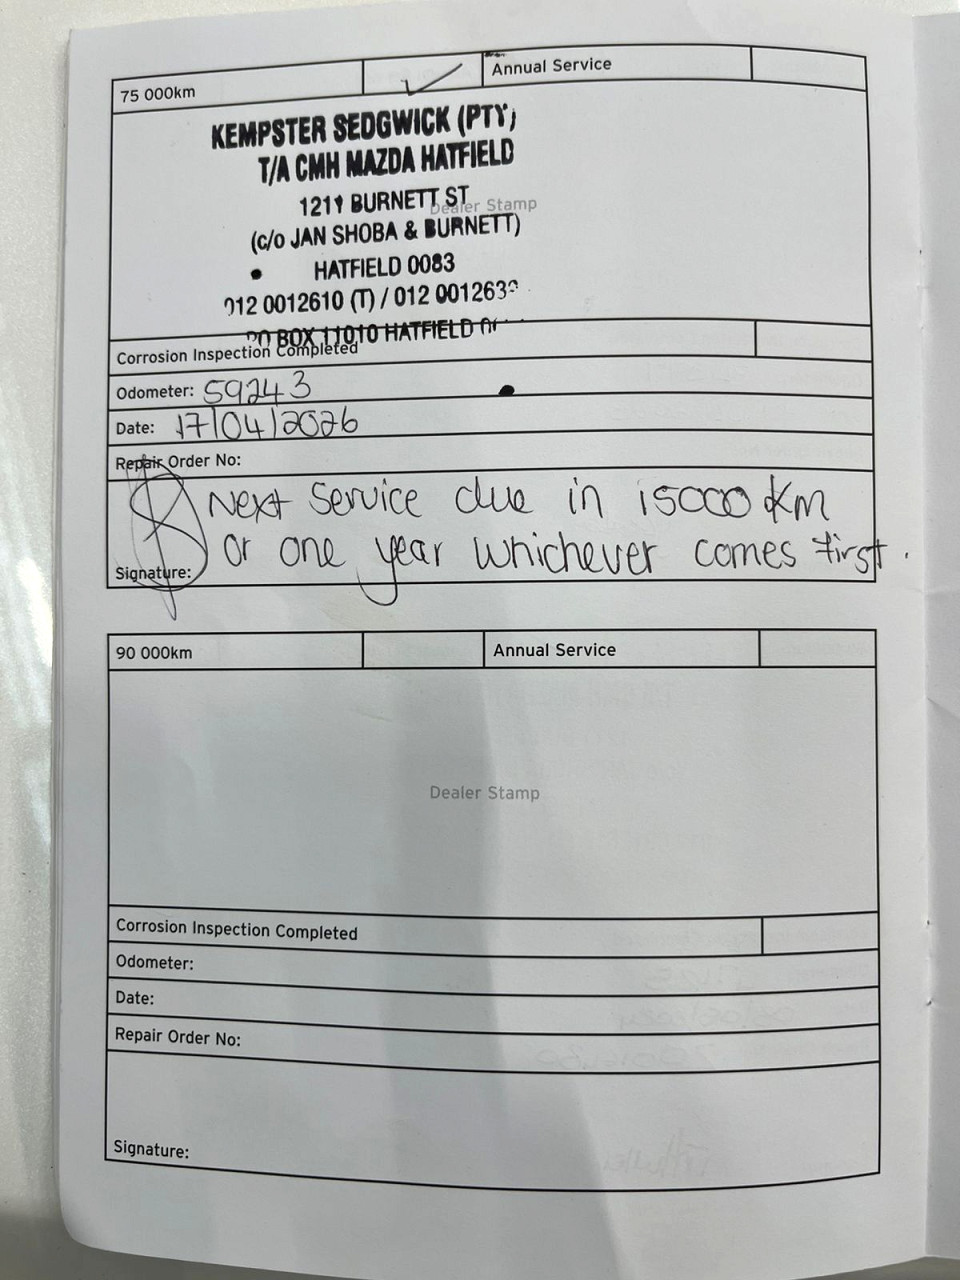 75 000km Annual Service
KEMPSTER SEDGWICK (PTY)
T/A CMH MAZDA HATFIELD
1211 BURNETT ST
Dealer Stamp
(c/o JAN SHOBA & BURNETT)
HATFIELD 0083
012 0012610 (T) / 012 001263
PO BOX 11010 HATFIELD
Corrosion Inspection Completed
Odometer: 59243
Date: 17/04/2026
Repair Order No:
Next Service due in 15000 km
or one year whichever comes first.
Signature:
90 000km Annual Service
Dealer Stamp
Corrosion Inspection Completed
Odometer:
Date:
Repair Order No:
Signature: